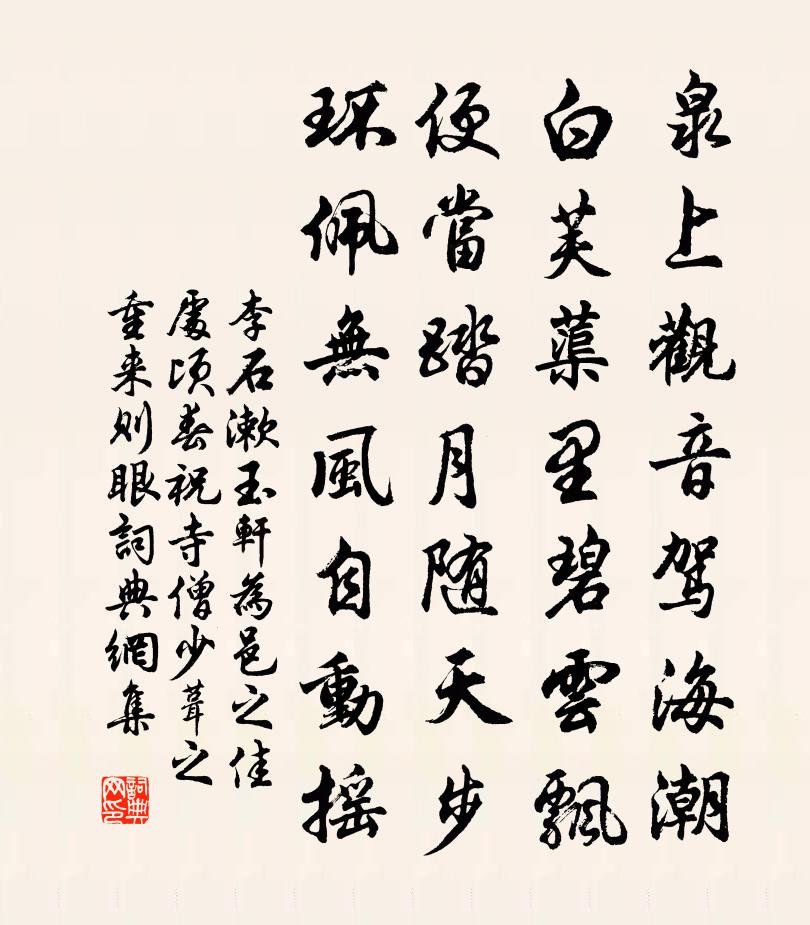 泉上觀音駕海潮
白芙蕖里碧雲飄
便當踏月随天步
环佩無風自動摇
李石漱玉軒為邑之佳
處頃春祝寺僧少葺之
重来则眼詞典網集
詞典网印